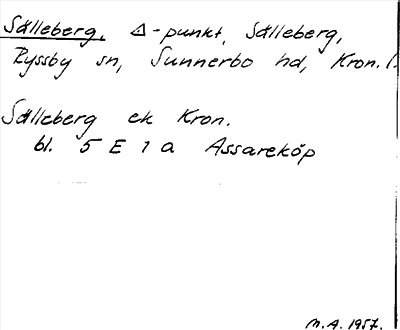 Sälleberg, △-punkt, Sälleberg,
Ryssby sn, Sunnerbo hd, Kron. l.
Sälleberg ek Kron.
bl. 5 E 1 a Assareköp
M.A. 1957.